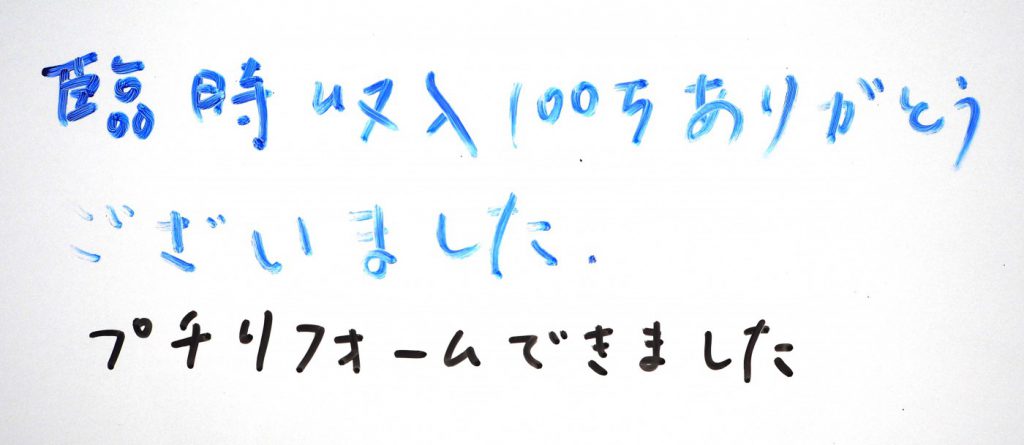 臨時収入100万ありがとう
ございました.
プチリフォームできました